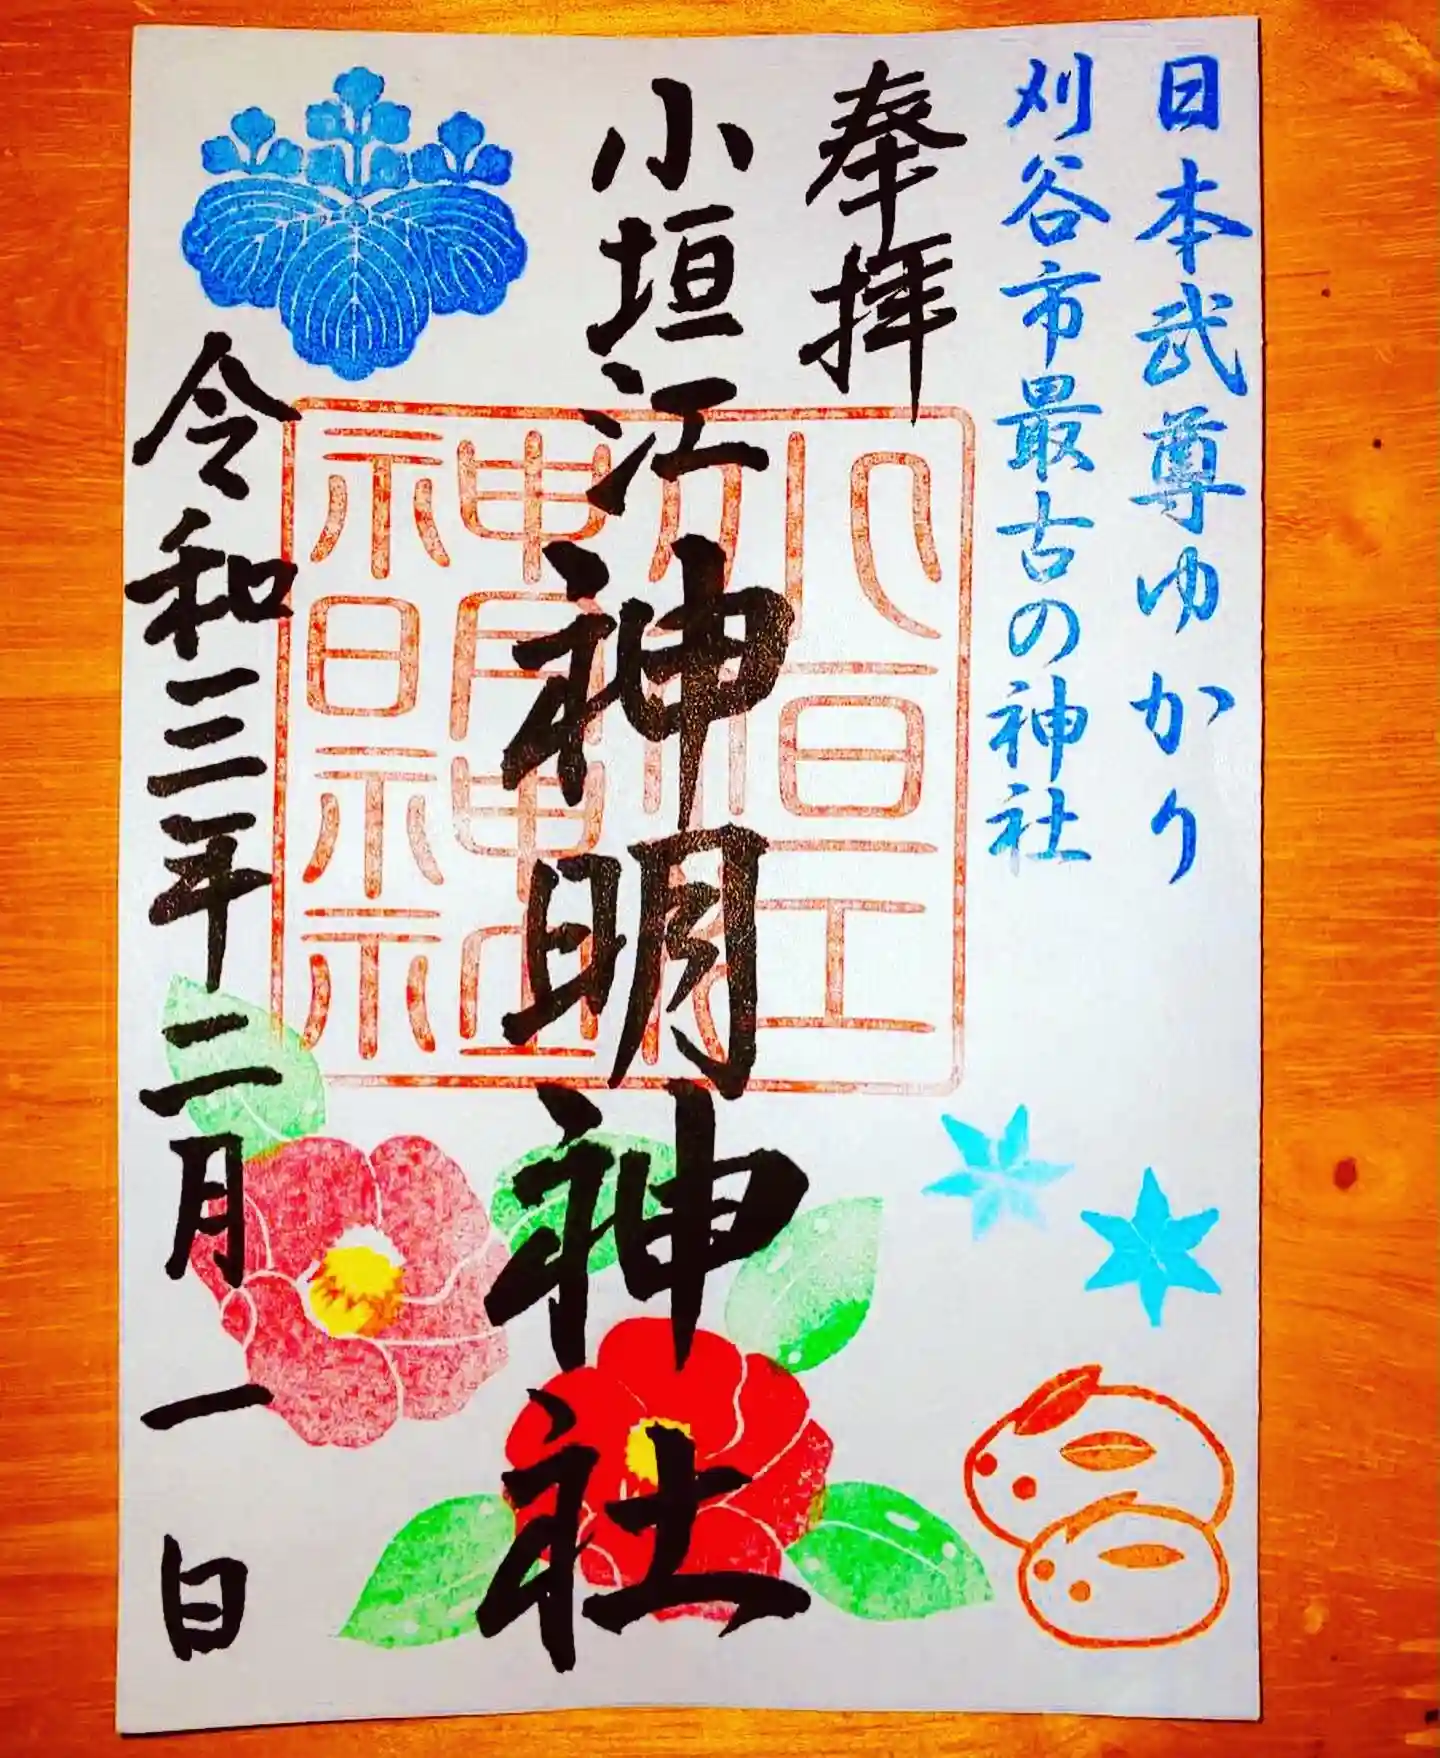 日本武尊ゆかり
刈谷市最古の神社
奉拝
小垣江神明神社
令和三年二月一日